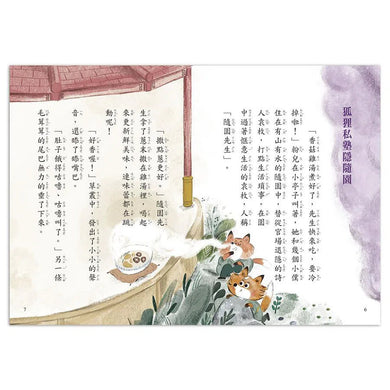 狐狸私塾隱隨園
「香菇雞湯煮好了，先生快來吃，要冷
掉啦！」粉兒在小亭子叫著，她和幾個小僕
住在有山有水的隨園中，替從官場退隱的詩
人袁枚，打點生活瑣事。在園
中過著愜意生活的袁枚，人稱
「隨園先生」。
「撒點蔥更好。」隨園先
生拿了蔥末撒在雞湯裡，「喝起
來更新鮮美味，連味蕾都在跳
動呢！」
「好香喔！」草叢中，發出了小小的聲
音，還咂了咂嘴巴。
「肚子餓得咕嚕、咕嚕叫了。」另一條
毛茸茸的尾巴無力的垂了下來。
6
7